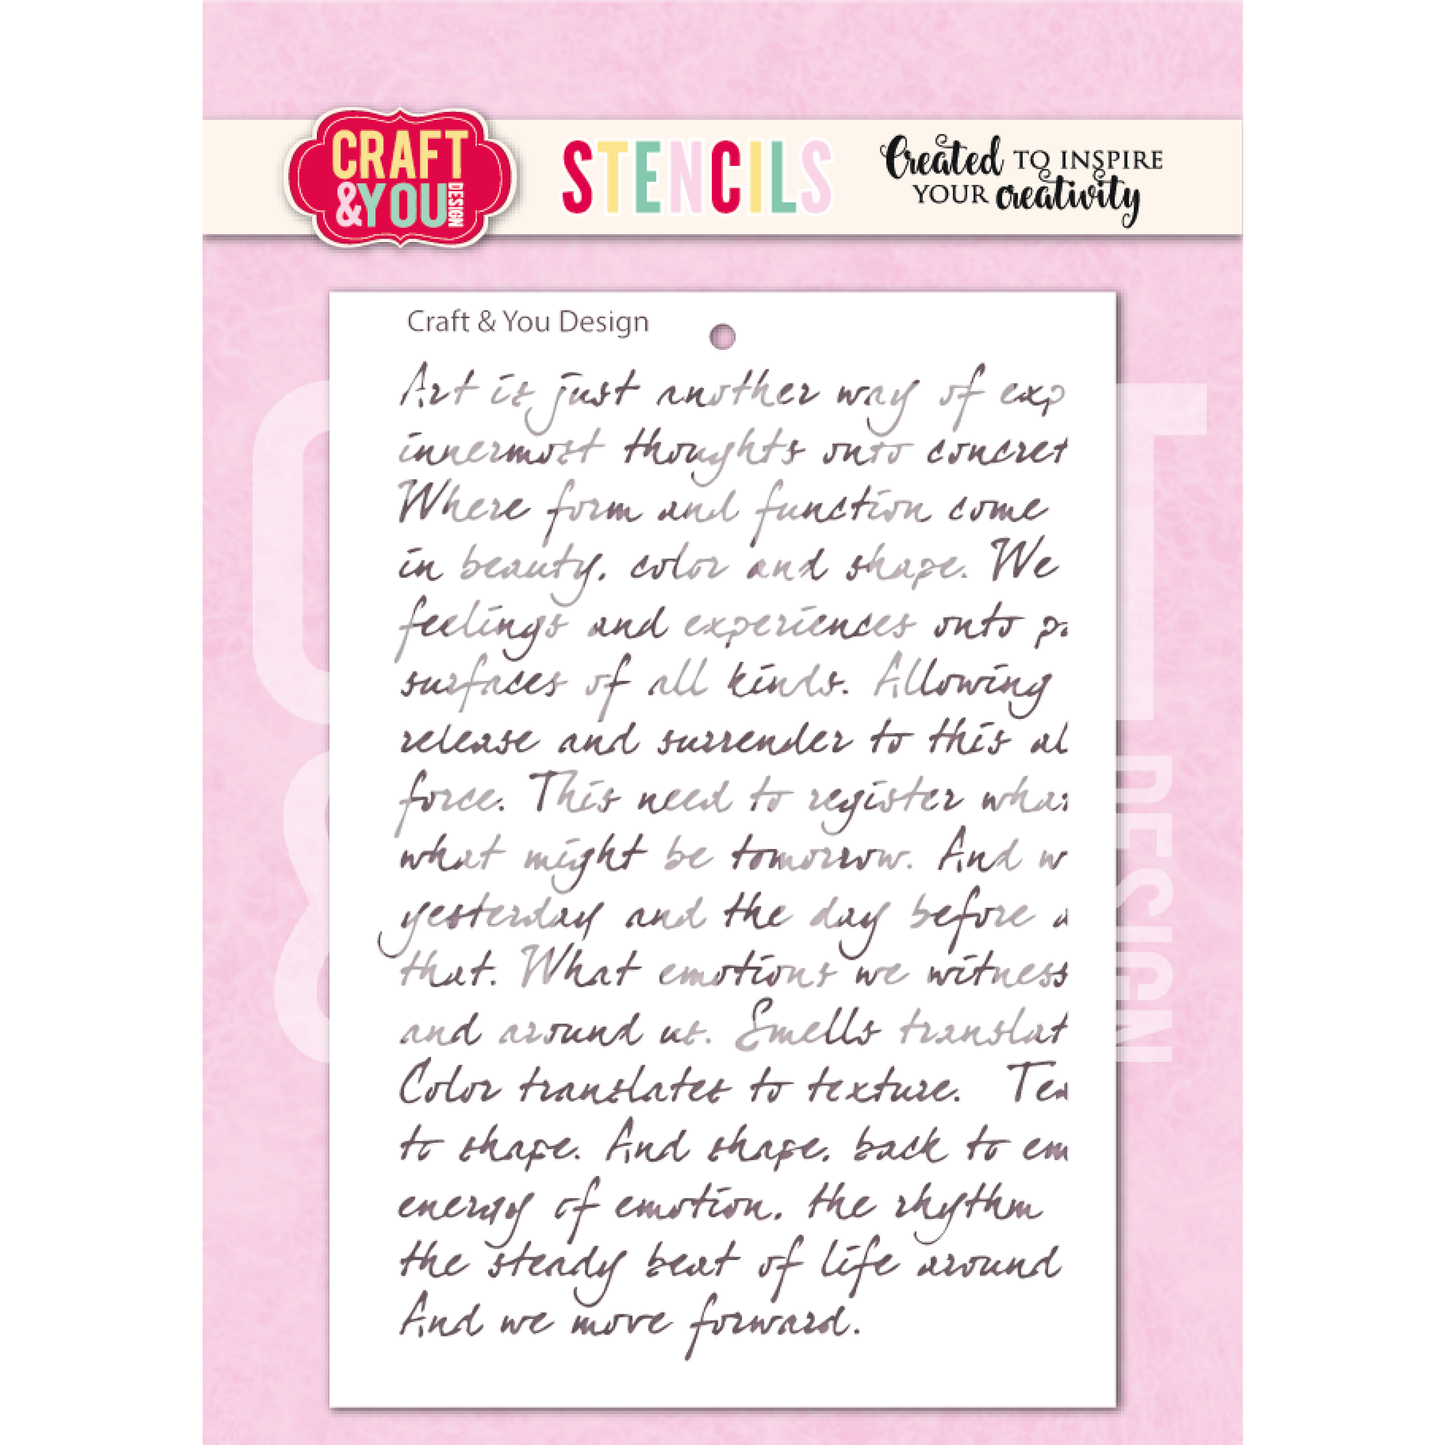 CRAFT
&YOU
DESIGN
STENCILS
Created TO INSPIRE
YOUR creativity
Craft & You Design
Art is just another way of exp
innermost thoughts onto concret
Where form and function come
in beauty, color and shape. We
feelings and experiences onto pa
surfaces of all kinds. Allowing
release and surrender to this al
force. This need to register what
what might be tomorrow. And w
yesterday and the day before a
that. What emotions we witness
and around us. Smells translat
Color translates to texture. Tex
to shape. And shape, back to em
energy of emotion, the rhythm
the steady beat of life around
And we move forward.
&
T
DESIGN